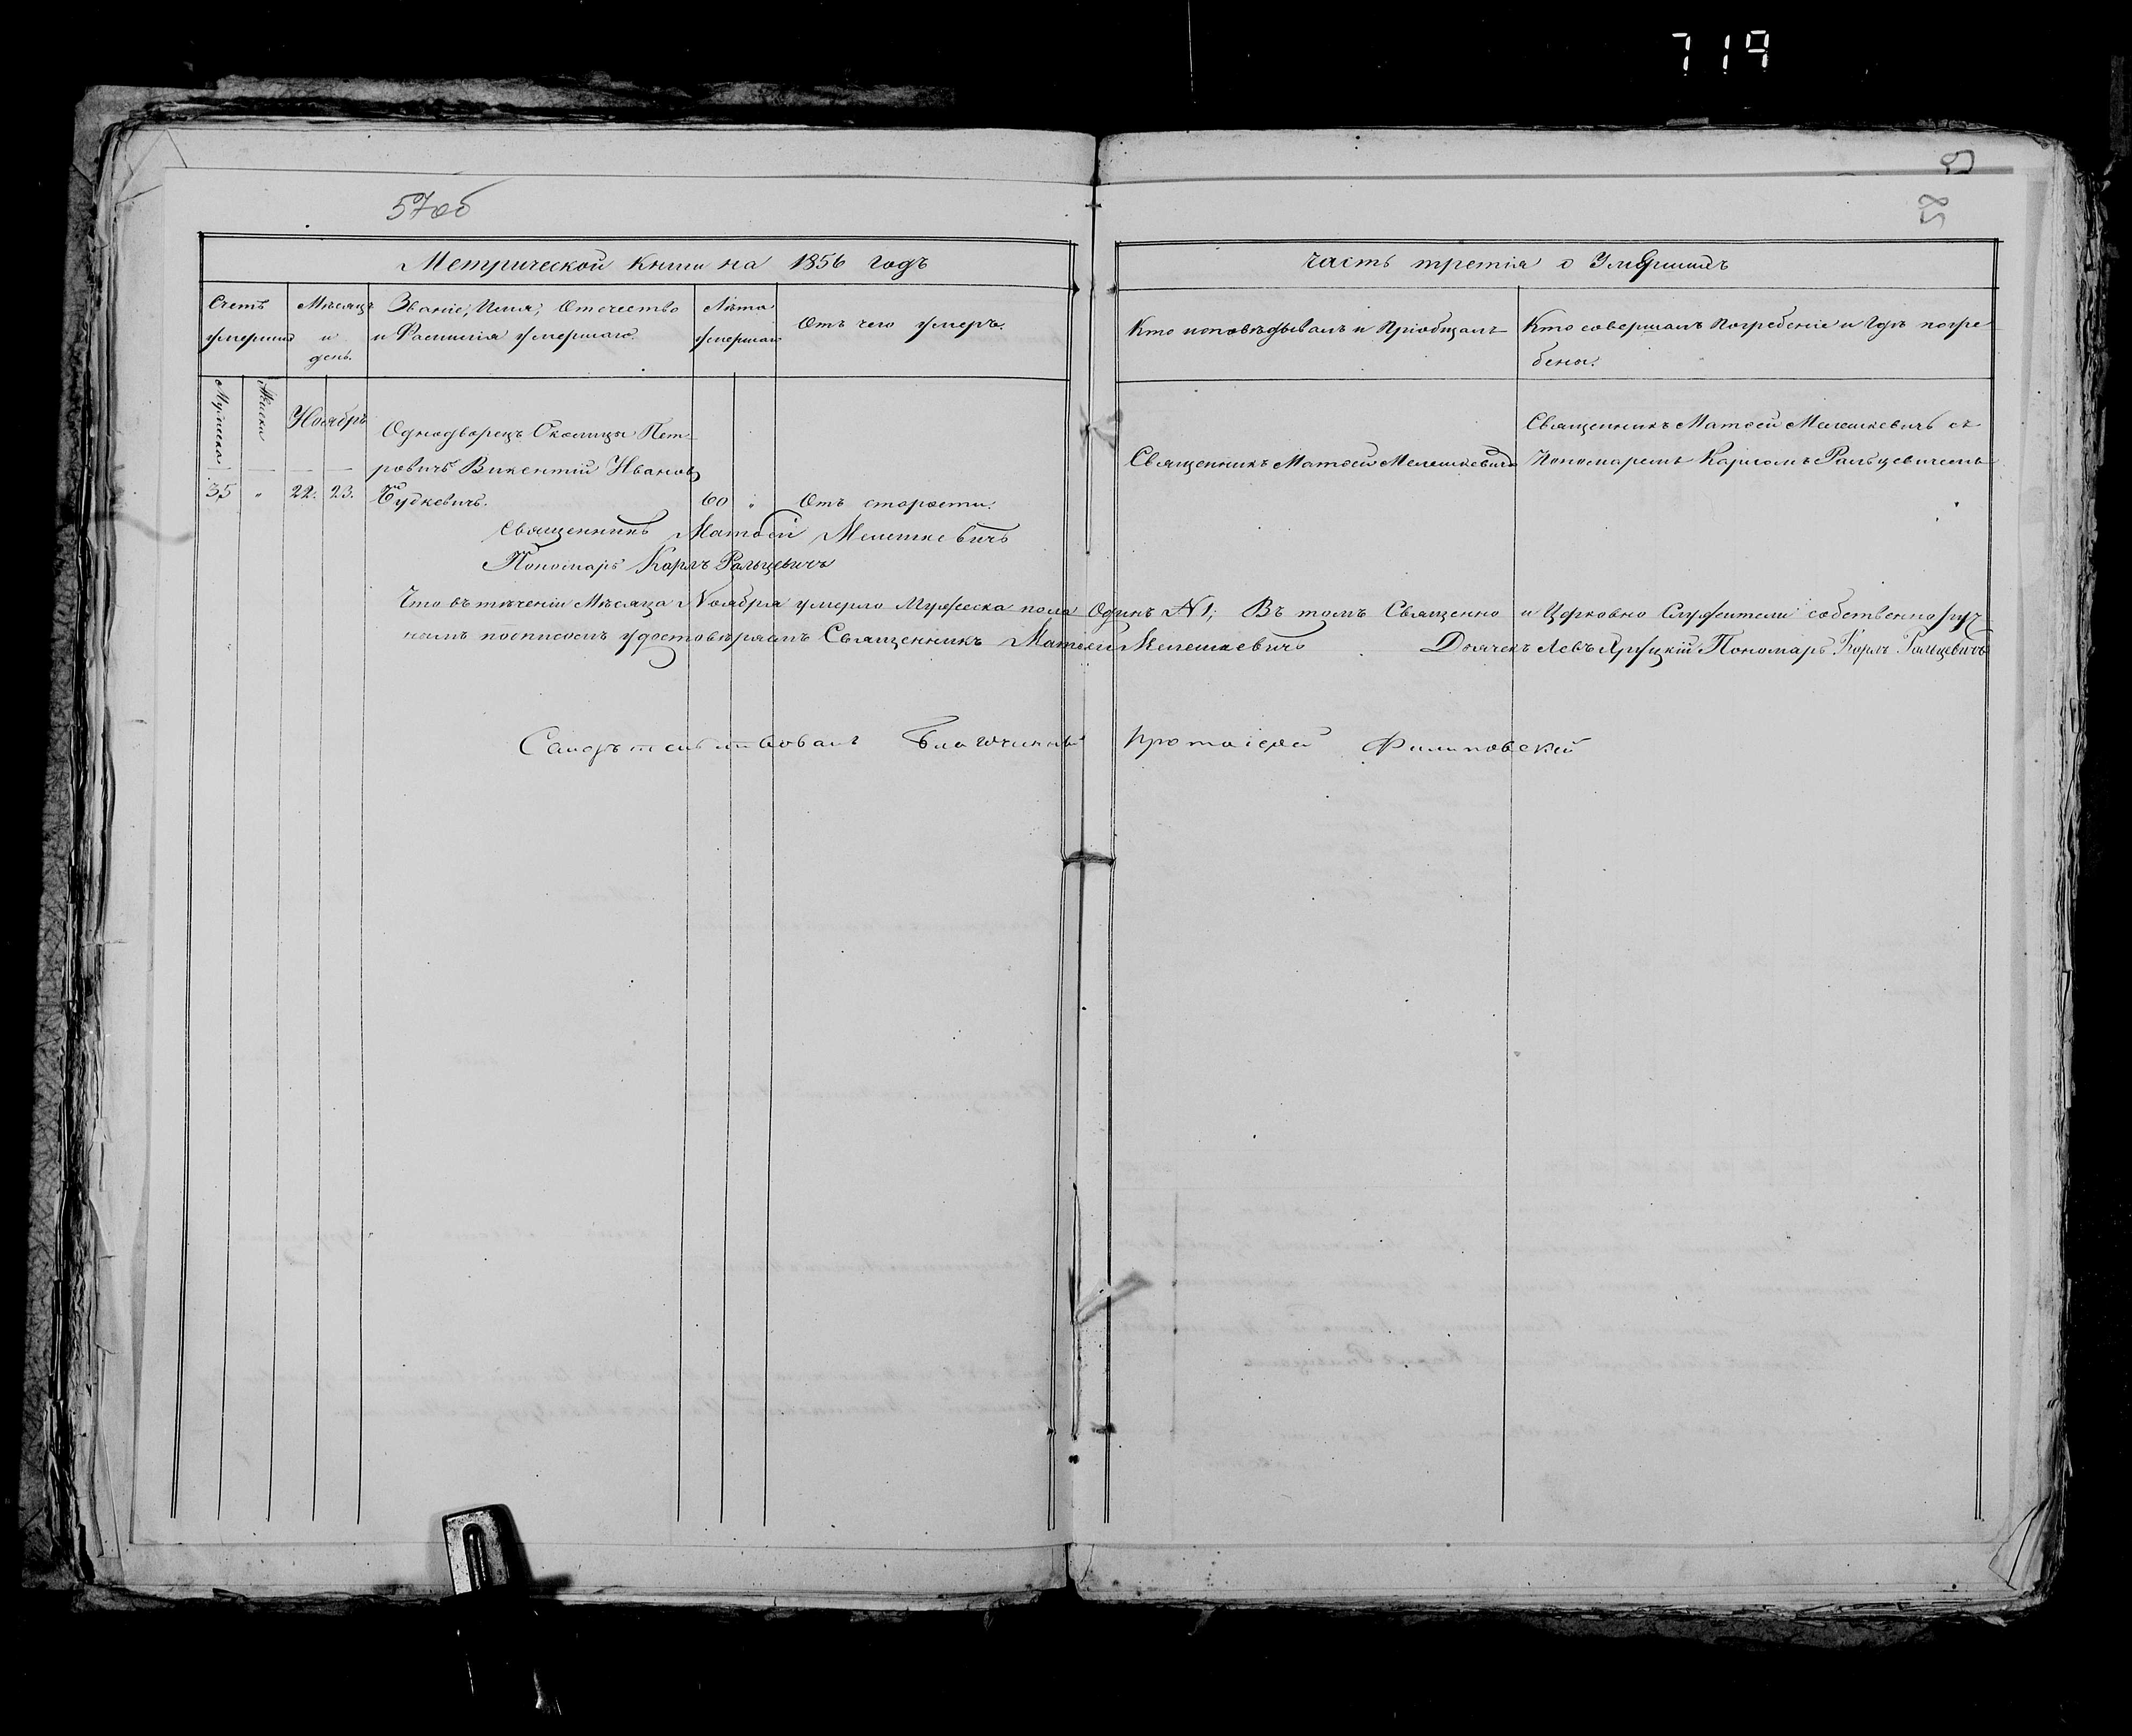 719
57об
58
Метрической книги на 1856 годъ
часть третія о Умершихъ
Счетъ умершихъ
Мѣсяцъ и день.
Званіе, Имя, Отчество и Фамилія умершаго.
Лѣта умершаго
Отъ чего умеръ.
Кто исповѣдывалъ и пріобщалъ
Кто совершалъ погребеніе и гдѣ погре
бены.
Мужеска
Женска
Ноябрь
Однодворецъ Околицы Пет-
ровичъ Викентій Ивановъ
35 " 22. 23. Будкевичъ. 60 " Отъ старости.
Священникъ Матѳей Мелешкевичъ
Священникъ Матѳей Мелешкевичъ съ
Пономаремъ Карломъ Ральцевичемъ
Священникъ Матѳей Мелешкевичъ
Пономарь Карлъ Ральцевичъ
Что въ теченіи Мѣсяца Ноября умерло Мужеска пола Одинъ №1, Въ томъ Священно и Церковно Служители собственноруч
нымъ подписомъ удостовѣряемъ Священникъ Матѳей Мелешкевичъ Дьячекъ Левъ Яруцкій Пономарь Карлъ Ральцевичъ
Свидѣтельствовалъ Благочинный Протоіерей Филиповскій